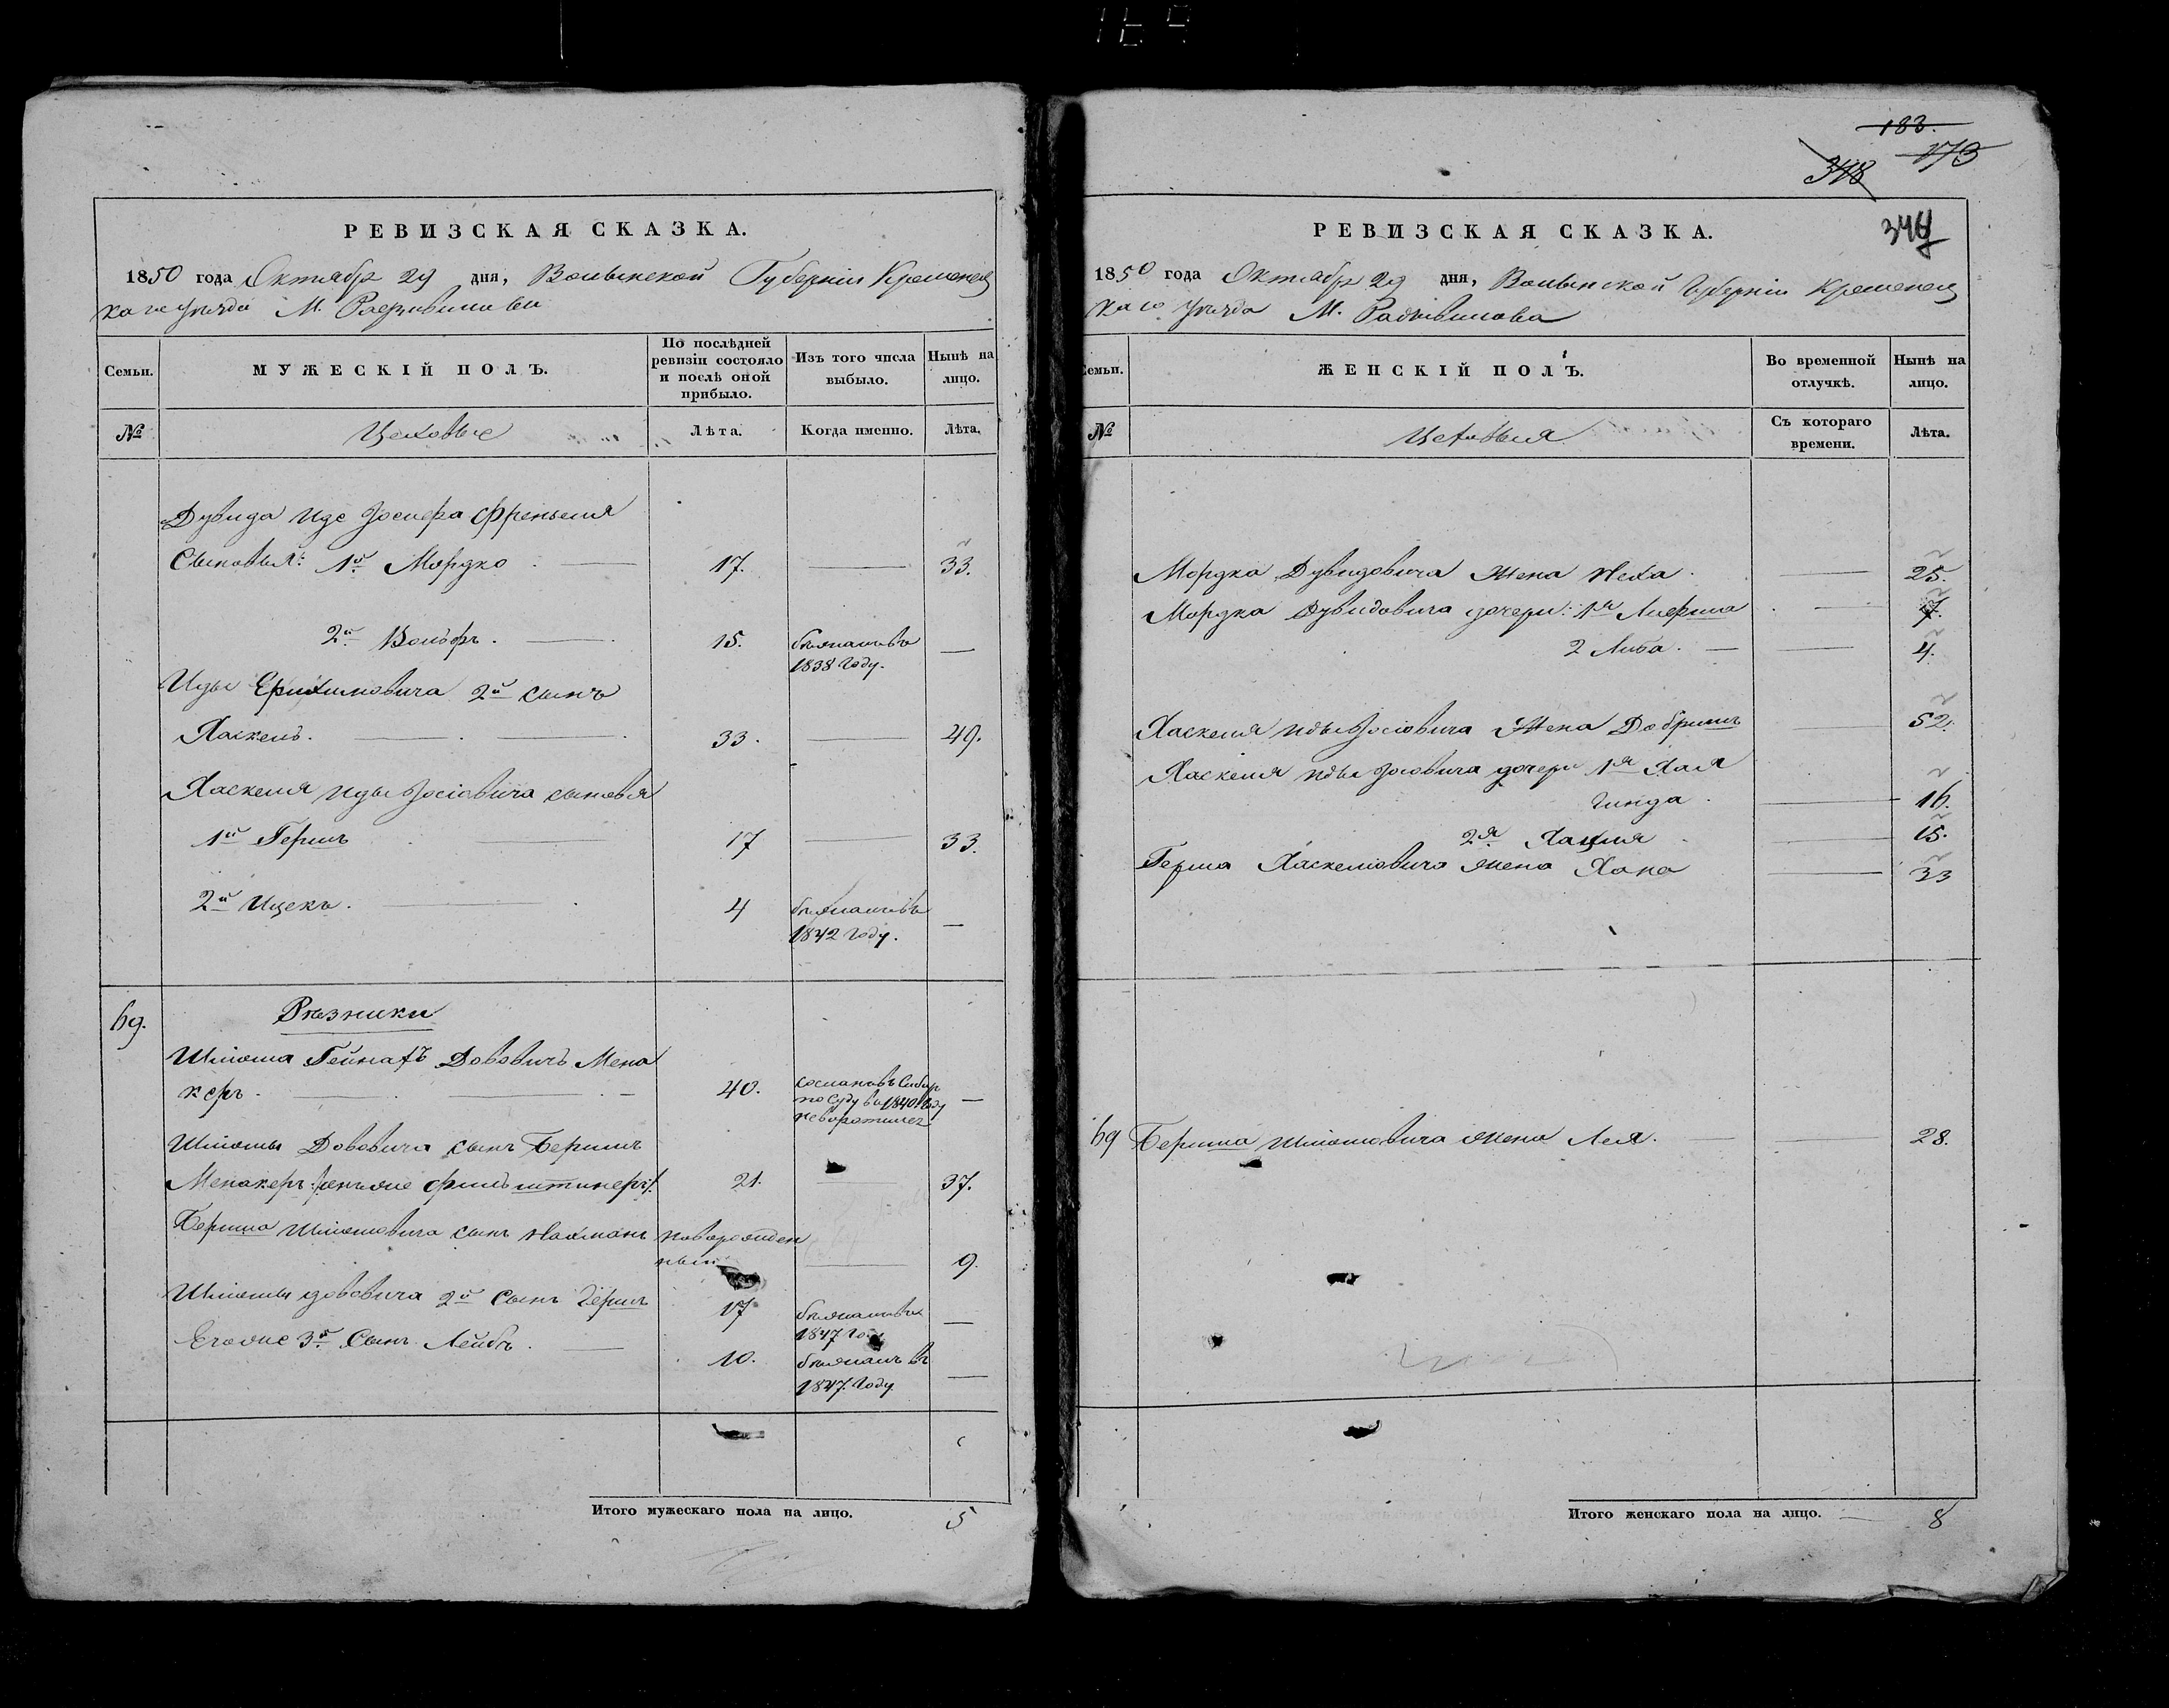 183.
173
348
349
РЕВИЗСКАЯ СКАЗКА.
1850 года Октября 29 дня, Волынской Губерніи Кременец
каго уезда М. Радзивилова
Семьи.
МУЖЕСКІЙ ПОЛЪ.
По послѣдней
ревизіи состояло
и послѣ оной
прибыло.
Изъ того числа
выбыло.
Нынѣ на
лицо.
№
Цеховые
Лѣта.
Когда именно.
Лѣта.
Дувида Иде Йосифа Френкеля
Сыновья: 1й Мордко 17. 33.
2й Вольфъ. 15. бѣжалъ въ
1838 году.
Иды 2й сынъ
Хаскель. 33. 49.
Хаскеля Иды Йосіовича сыновья
1й Гершъ 17 33.
2й Ицекъ. 4 бѣжалъ въ
1842 году.
69. Рѣзники
Шліома Дововичъ Мена
керъ. 40. сосланъ въ Сибирь
по суду въ 1840 году
Шліомы Дововича сынъ Бершъ
Менакеръ 21. 37.
Берша Шліомовича сынъ Нахманъ новорожден
ный 9.
Шліомы Дововича 2й сынъ Гершъ 17 бѣжалъ въ
1847 году
Егоже 3й Сынъ Лейбъ. 10. бѣжалъ въ
1847. году
Итого мужескаго пола на лицо. 5
РЕВИЗСКАЯ СКАЗКА.
1850 года Октября 29 дня, Волынской Губерніи Кременец
каго уезда М. Радзивилова
Семьи.
ЖЕНСКІЙ ПОЛЪ.
Во временной
отлучкѣ.
Нынѣ на
лицо.
№
Цеховыя
Съ котораго
времени.
Лѣта.
Мордка Дувидовича жена Неха. 25.
Мордка Дувидовича дочери: 1я 7.
2 Либа. 4.
Хаскеля Иды Йосіовича жена Добришъ 52.
Хаскеля Иды Йосіовича дочери 1я Хая
Гинда. 16.
2я 15.
Герша Хаскеліовича жена Хана 33
69 Берша Шліомовича жена Лея. 28.
Итого женскаго пола на лицо. 8